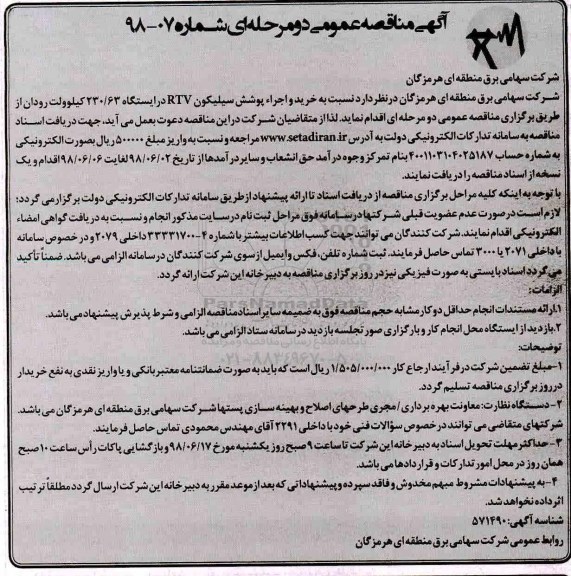 آگهی مناقصه عمومی دو مرحله‌ای شماره ۰۷-۹۸
شرکت سهامی برق منطقه ای هرمزگان
شرکت سهامی برق منطقه ای هرمزگان در نظر دارد نسبت به خرید و اجراء پوشش سیلیکون RTV در ایستگاه ۲۳۰/۶۳ کیلوولت رودان از
طریق برگزاری مناقصه عمومی دو مرحله ای اقدام نماید. لذا از متقاضیان شرکت در این مناقصه دعوت بعمل می آید، جهت دریافت اسناد
مناقصه به سامانه تدارکات الکترونیکی دولت به آدرس www.setadiran.ir مراجعه و نسبت به واریز مبلغ ۵۰۰۰۰۰ ریال بصورت الکترونیکی
به شماره حساب ۴۰۰۱۱۰۳۱۰۴۰۲۵۱۸۷ بنام تمرکز وجوه درآمد حق انشعاب و سایر درآمدها از تاریخ ۹۸/۰۶/۰۲ لغایت ۹۸/۰۶/۰۶ اقدام و یک
نسخه از اسناد مناقصه را دریافت نمایند.
با توجه به اینکه کلیه مراحل برگزاری مناقصه از دریافت اسناد تا ارائه پیشنهاد از طریق سامانه تدارکات الکترونیکی دولت برگزار می گردد؛
لازم است در صورت عدم عضویت قبلی شرکتها در سامانه فوق مراحل ثبت نام در سایت مذکور انجام و نسبت به دریافت گواهی امضاء
الکترونیکی اقدام نمایند. شرکت کنندگان می توانند جهت کسب اطلاعات بیشتر با شماره ۴-۳۳۳۳۱۷۰۰ داخلی ۲۰۷۹ و در خصوص سامانه
با داخلی ۲۰۷۱ یا ۳۰۰۰ تماس حاصل فرمایند. ثبت شماره تلفن، فکس و ایمیل از سوی شرکت کنندگان در سامانه الزامی می باشد. ضمناً تأکید
می گردد اسناد بایستی به صورت فیزیکی نیز در روز برگزاری مناقصه به دبیرخانه این شرکت ارائه گردد.
الزامات:
۱.ارائه مستندات انجام حداقل دو کار مشابه حجم مناقصه فوق به ضمیمه سایر اسناد مناقصه الزامی و شرط پذیرش پیشنهاد می باشد.
۲.بازدید از ایستگاه محل انجام کار و بارگزاری صورتجلسه بازدید در سامانه ستاد الزامی می باشد.
توضیحات:
۱-مبلغ تضمین شرکت در فرآیند ارجاع کار ۱/۵۰۵/۰۰۰/۰۰۰ ریال است که باید به صورت ضمانتنامه معتبر بانکی و یا واریز نقدی به نفع خریدار
در روز برگزاری مناقصه تسلیم گردد.
۲-دستگاه نظارت: معاونت بهره برداری / مجری طرحهای اصلاح و بهینه سازی پستها شرکت سهامی برق منطقه ای هرمزگان می باشد.
شرکتهای متقاضی می توانند در خصوص سؤالات فنی خود با داخلی ۲۲۹۱ آقای مهندس محمودی تماس حاصل فرمایند.
۳-حداکثر مهلت تحویل اسناد به دبیرخانه این شرکت تا ساعت ۹ صبح روز یکشنبه مورخ ۹۸/۰۶/۱۷ و بازگشایی پاکات رأس ساعت ۱۰ صبح
همان روز در محل امور تدارکات و قراردادها می باشد.
۴-به پیشنهادات مشروط مبهم مخدوش و فاقد سپرده و پیشنهاداتی که بعد از موعد مقرر به دبیرخانه این شرکت ارسال گردد مطلقاً ترتیب
اثر داده نخواهد شد.
شناسه آگهی: ۵۷۱۴۹۰
روابط عمومی شرکت سهامی برق منطقه ای هرمزگان
ParsNamadData
۰۲۱-۸۸۳۴۹۶۷۰-۵